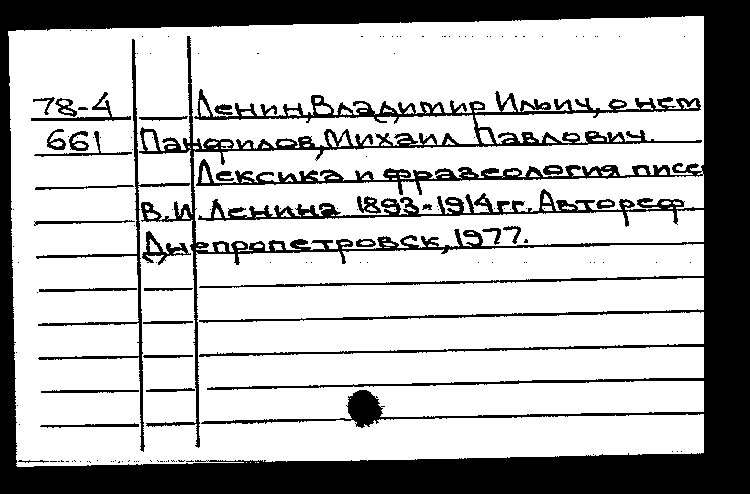 78-4 Ленин, Владимир Ильич, о нем
661 Панфилов, Михаил Павлович.
Лексика и фразеология писе
В.И. Ленина 1893-1914гг. Автореф.
Днепропетровск, 1977.